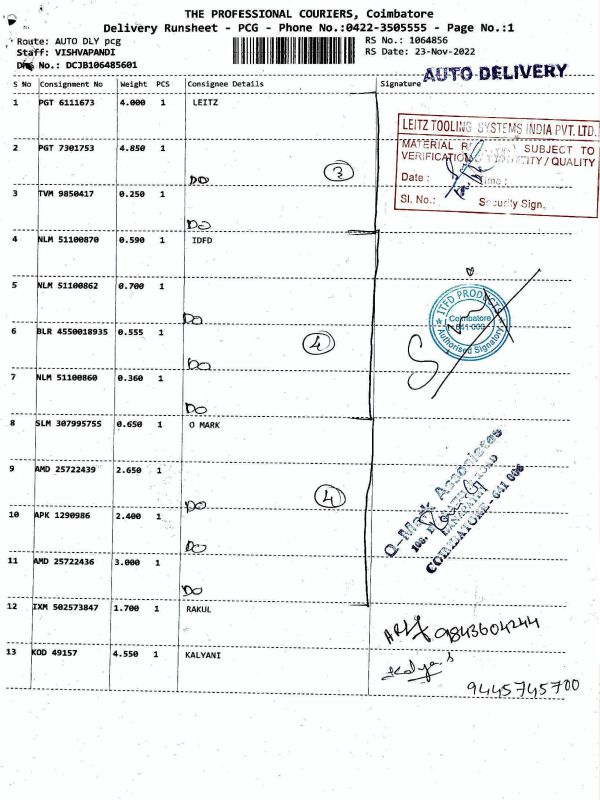 THE PROFESSIONAL COURIERS, Coimbatore
Delivery Runsheet - PCG - Phone No.:0422-3505555 - Page No.:1
Route: AUTO DLY pcg
RS No.: 1064856
Staff: VISHVAPANDI
RS Date: 23-Nov-2022
No.: DCJB106485601
AUTO DELIVERY
S No Consignment No Weight PCS Consignee Details Signature
1 PGT 6111673 4.000 1 LEITZ
LEITZ TOOLING SYSTEMS INDIA PVT. LTD.
MATERIAL SUBJECT TO
VERIFICATION / QUALITY
Date : Time :
Sl. No.: Security Sign.
2 PGT 7301753 4.850 1 DO
3
3 TVM 9850417 0.250 1 DO
4 NLM 51100870 0.590 1 IDFD
5 NLM 51100862 0.700 1 DO
ITFD PRODUCTS
Coimbatore
641 003
Authorised Signatory
6 BLR 4550018935 0.555 1 DO
4
7 NLM 51100860 0.360 1 DO
8 SLM 307995755 0.650 1 O MARK
9 AMD 25722439 2.650 1 DO
4
Q-Mark Associates
COIMBATORE - 641 006
10 APK 1290986 2.400 1 DO
11 AMD 25722436 3.000 1 DO
12 IXM 502573847 1.700 1 RAKUL
9843604244
13 KOD 49157 4.550 1 KALYANI
9445745700